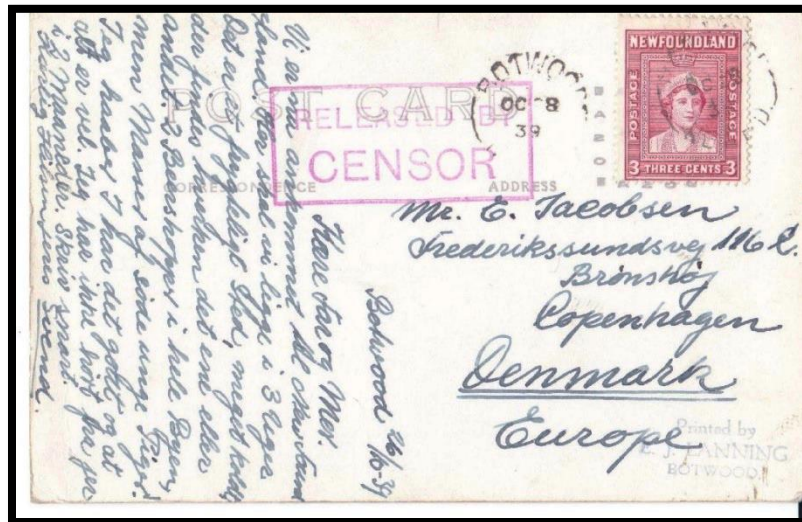 POST CARD
CORRESPONDENCE
ADDRESS
RELEASED BY
CENSOR
BOTWOOD
OC 8
39
NEWFOUNDLAND
POSTAGE
POSTAGE
3 THREE CENTS 3
Mr. E. Jacobsen
Frederikssundsvej 116
Brønshøj
Copenhagen
Denmark
Europe
Printed by
E. J. LANNING
BOTWOOD
Botwood 26/10-39
Kære Far og Mor.
Vi er nu ankommet til Newfound
land. Her skal vi ligge i 3 Uger
Det er et frygteligt Sted, meget koldt,
der findes hverken det ene eller
andet. 2 Beershopper i hele Byen,
men Masser af søde unge Piger.
Jeg haaber I har det godt og at
alt er vel. Jeg har ikke hørt fra jer
i 2 Maaneder. Skriv snart.
Kærlig Hilsen Jeres Svend.